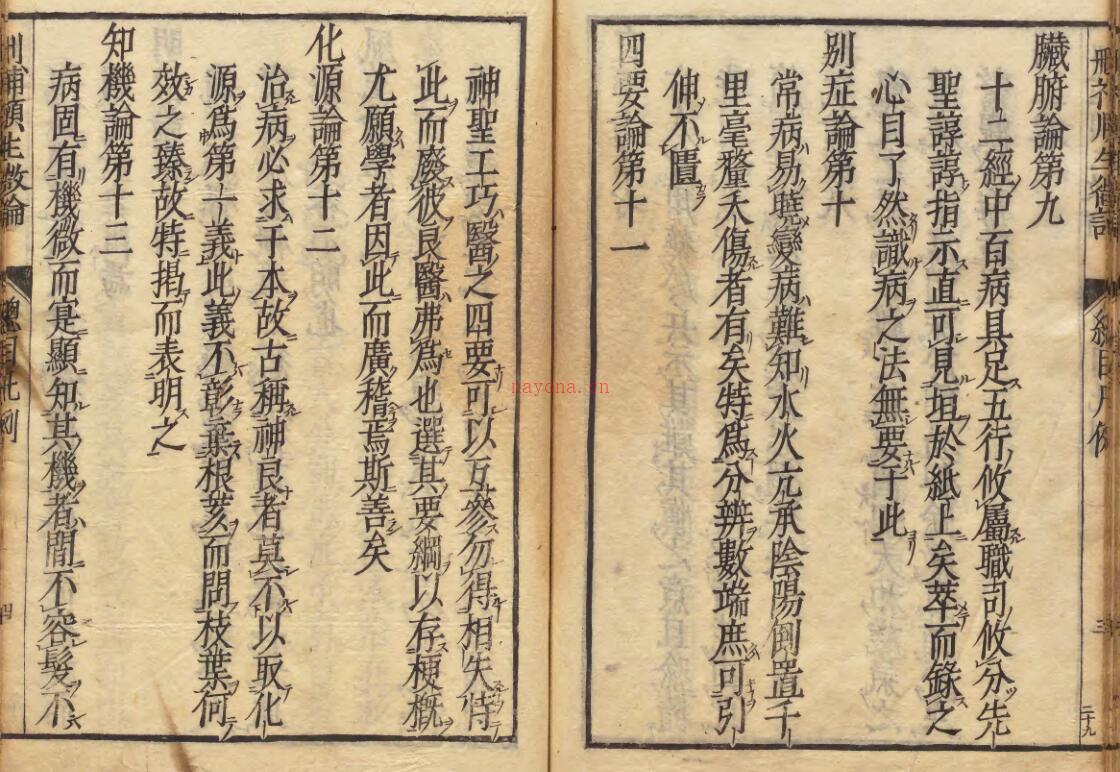 臓腑論第九
十二經中百病具足五行攸屬職司攸分先
聖諄諄指示直可見垣於紙上矣萃而錄之
心目了然識病之法無要于此
别症論第十
常病易曉變病難知水火亢承陰陽倒置千
里毫釐夭傷者有矣特為分辨數端庶可引
伸不匱
四要論第十一
神聖工巧醫之四要可以互參勿得相失恃
此而廢彼良醫弗為也選其要綱以存梗概
尤願學者因此而廣稽焉斯善矣
化源論第十二
治病必求于本故古稱神良者莫不以取化
源為第一義此義不彰棄根荄而問枝葉何
效之臻故特揭而表明之
知機論第十三
病固有機微而寔顯知其機者間不容髮不
刪補頤生微論
總目凡例
四
三
二十九
nayona.cn